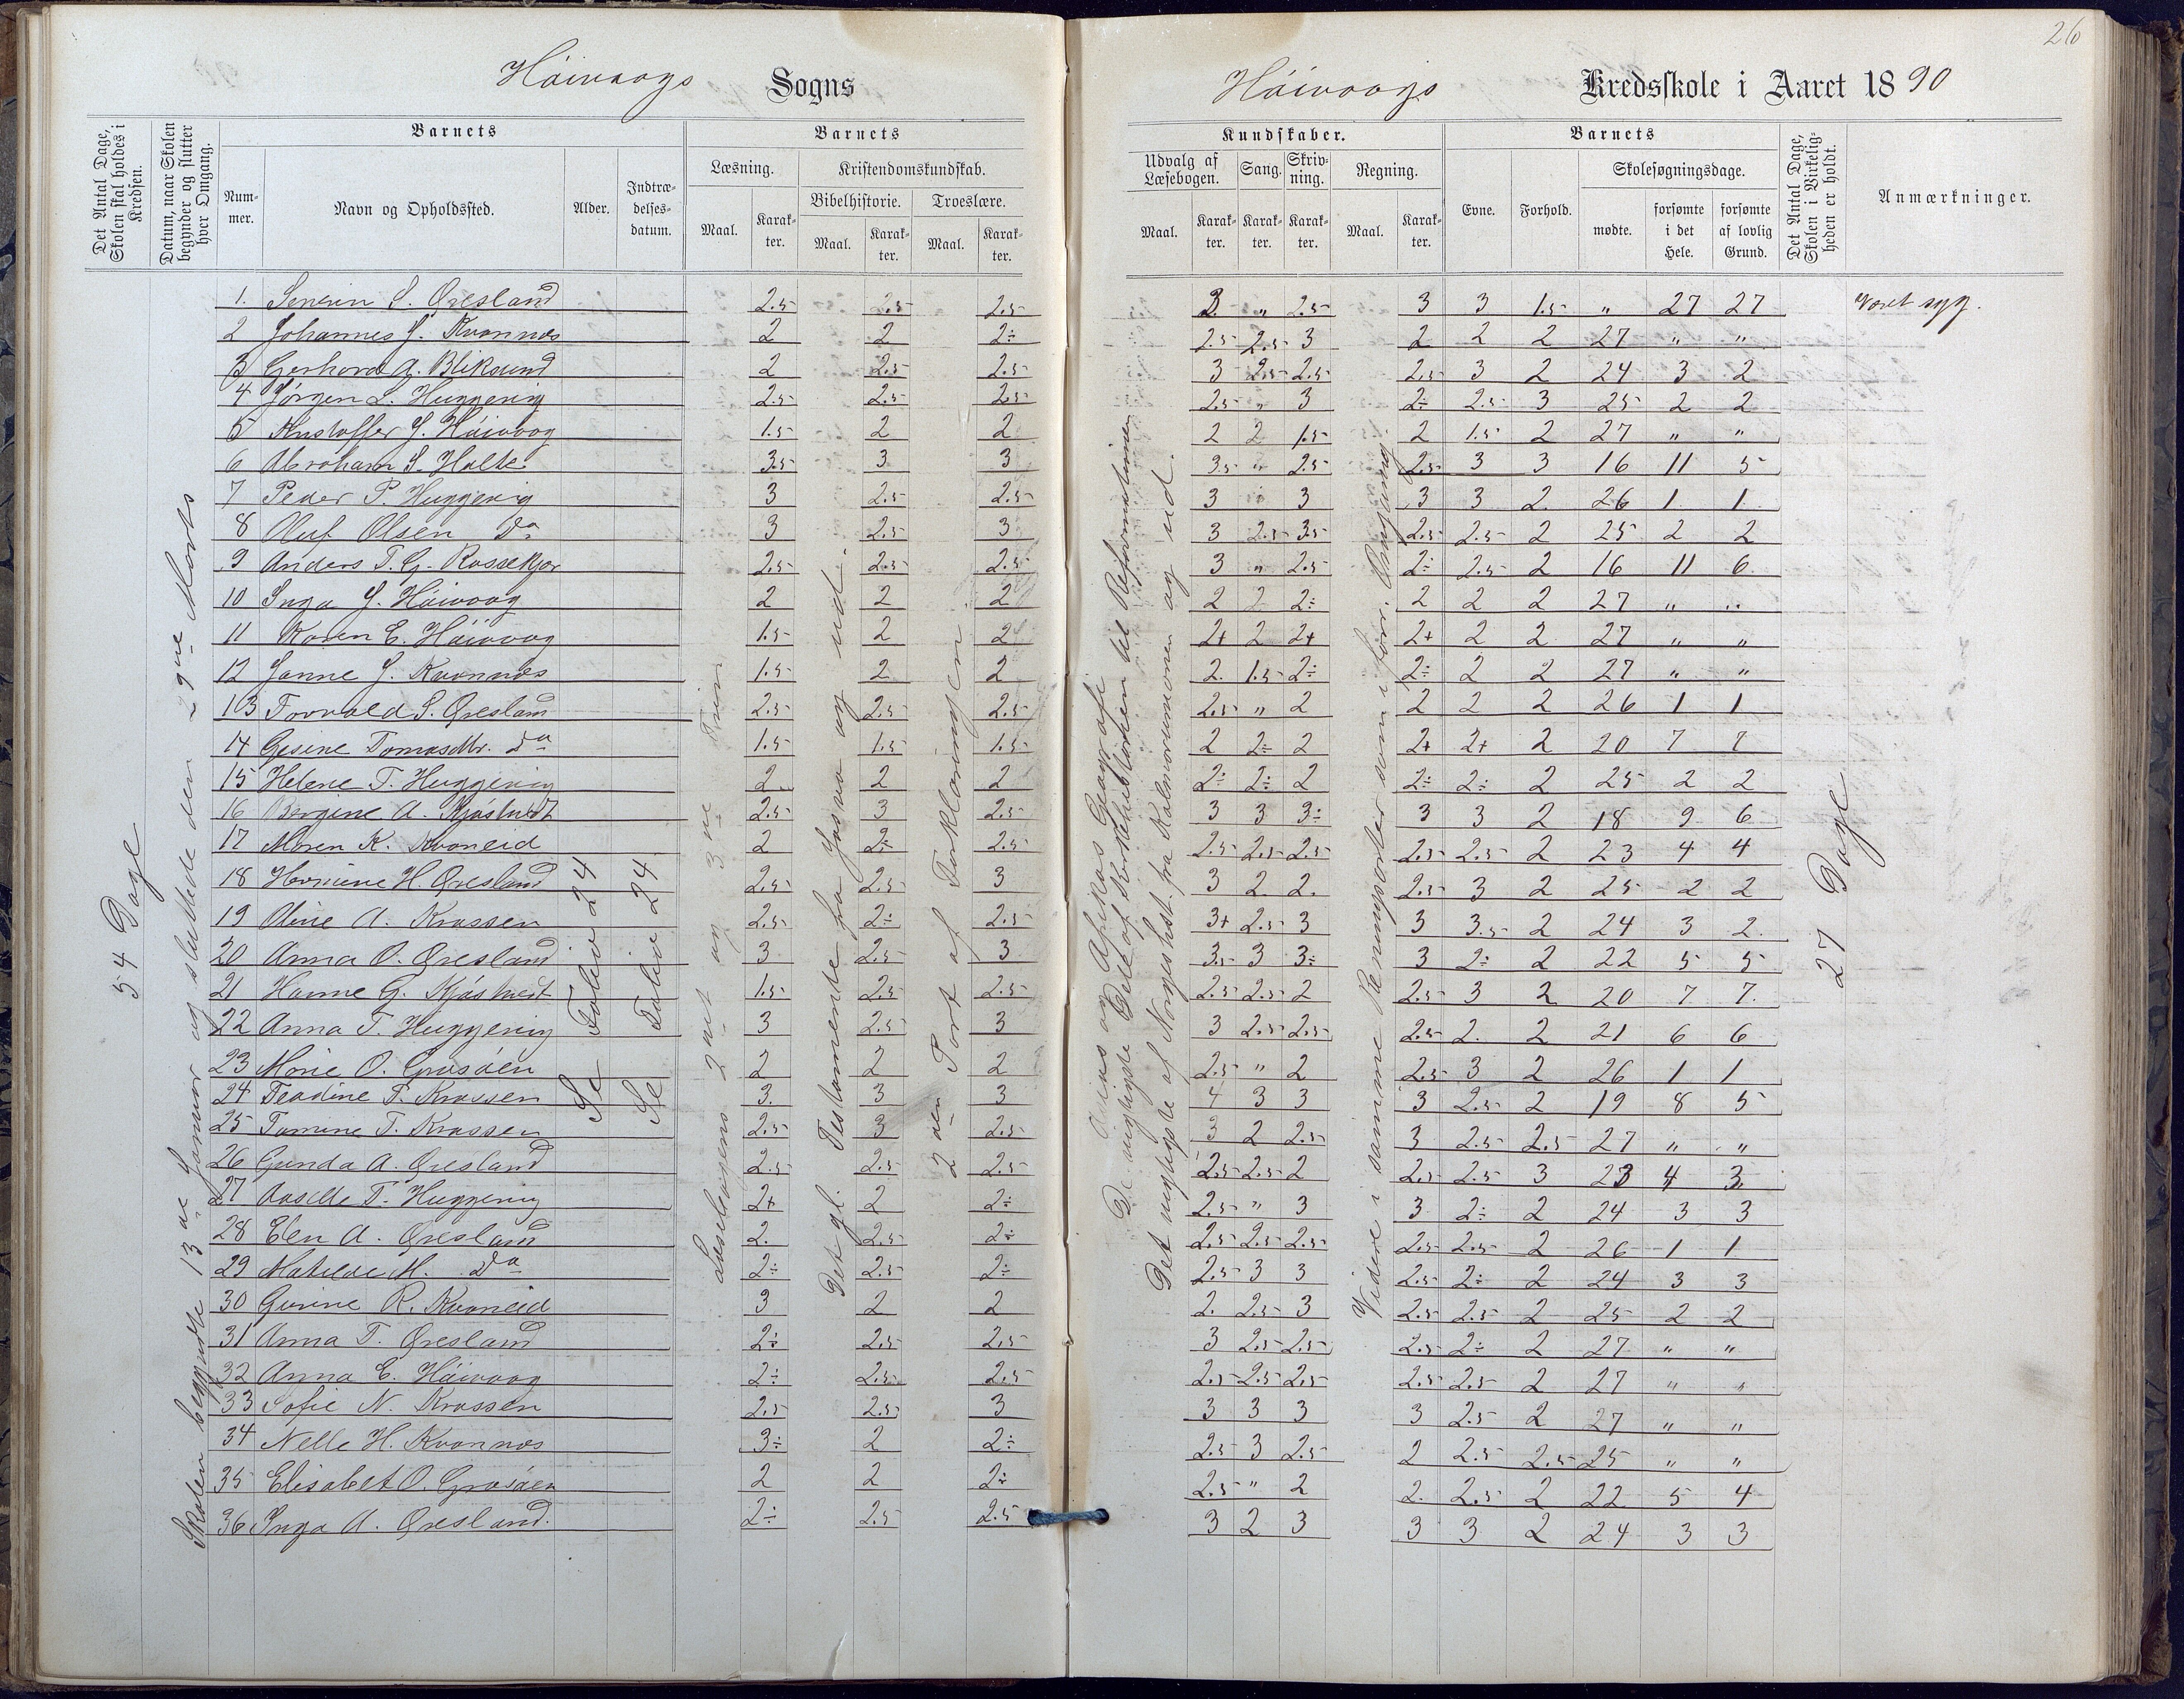 26
Håivaags Sogns
Håivaags Kredsskole i Aaret 1890
Det Antal Dage, Skolen skal holdes i Kredsen.
Datum, naar Skolen begynder og slutter hver Omgang.
Barnets
Nummer.
Navn og Opholdssted.
Alder.
Indtrædelsesdatum.
Barnets
Læsning.
Kristendomskundskab.
Bibelhistorie.
Troeslære.
Maal. Karakter. Maal. Karakter. Maal. Karakter.
Kundskaber.
Udvalg af Læsebogen. Sang. Skrivning. Regning.
Maal. Karakter. Karakter. Karakter. Maal. Karakter.
Barnets
Evne. Forhold. Skolesøgningsdage.
mødte. forsømte i det Hele. forsømte af lovlig Grund.
Det Antal Dage, Skolen i Virkeligheden er holdt.
Anmærkninger.
54 Dage
Skolen begyndte 13de Januar og sluttede den 29ne Marts
Se Folio 24
Se Folio 24
Læsebogens 2net og 3ne Trin
Det gl. Testamente fra Josva og ud.
2den Part af Forklaringen
Asiens og Afrikas Geografi
De vigtigste Dele af Kirkehistorien til Reformationen
Det vigtigste af Norgeshist. fra Kalmarunionen og ud.
Videre i samme Regningsarter som i forr. Omgang.
27 Dage
1. Severin S. Øresland 2.5 2.5 2.5 3 " 2.5 3 3 1.5 " 27 27 Været syg.
2 Johannes J. Kvannes 2 2 2÷ 2.5 2.5 3 2 2 2 27 " "
3 Gerhard A. Bliksund 2 2.5 2.5 3 2.5 2.5 2.5 3 2 24 3 2
4 Jørgen L. Huggevig 2.5 2.5 2.5 2.5 " 3 2÷ 2.5 3 25 2 2
5 Kristoffer J. Håivaag 1.5 2 2 2 2 1.5 2 1.5 2 27 " "
6 Abraham S. Holte 3.5 3 3 3.5 " 2.5 2.5 3 3 16 11 5
7 Peder P. Huggevig 3 2.5 2.5 3 " 3 3 3 2 26 1 1
8 Oluf Olsen Do 3 2.5 3 3 2.5 3.5 2.5 2.5 2 25 2 2
9 Anders T. G. Rossekjær 2.5 2.5 2.5 3 " 2.5 2÷ 2.5 2 16 11 6
10 Inga J. Håivaag 2 2 2 2 2 2÷ 2 2 2 27 " "
11 Karen E. Håivaag 1.5 2 2 2+ 2 2+ 2+ 2 2 27 " "
12 Janne J. Kvannes 1.5 2 2 2. 1.5 2÷ 2÷ 2 2 27 " "
13 Torvald S. Øresland 2.5 2.5 2.5 2.5 " 2 2 2 2 26 1 1
14 Gesine Tomasdtr. Do 1.5 1.5 1.5 2 2÷ 2 2+ 2+ 2 20 7 7
15 Helene T. Huggevig 2 2 2 2÷ 2÷ 2 2÷ 2÷ 2 25 2 2
16 Bergine A. Kjøstvedt 2.5 3 2.5 3 3 3÷ 3 3 2 18 9 6
17 Maren K. Kvaneid 2 2÷ 2.5 2.5 2.5 2.5 2.5 2.5 2 23 4 4
18 Hermine H. Øresland 2.5 2.5 3 3 2 2. 2.5 3 2 25 2 2
19 Oline A. Krossen 2.5 2÷ 2.5 3+ 2.5 3 3 3.5 2 24 3 2
20 Anna O. Øresland 3 2.5 3 3.5 3 3÷ 3 2÷ 2 22 5 5
21 Hanne G. Kjøstvedt 1.5 2.5 2.5 2.5 2.5 2 2.5 3 2 20 7 7.
22 Anna T. Huggevig 3 2.5 3 3 2.5 2.5 2.5 2. 2 21 6 6
23 Marie O. Grøsåen 2 2 2 2.5 " 2 2.5 3 2 26 1 1
24 Teodine T. Krossen 3. 3 3 4 3 3 3 2.5 2 19 8 5
25 Tomine T. Krossen 2.5 3 2.5 3 2 2.5 3 2.5 2.5 27 " "
26 Gunda A. Øresland 2.5 2.5 2.5 2.5 2.5 2 2.5 2.5 3 23 4 3
27 Aaselle T. Huggevig 2+ 2 2÷ 2.5 " 3 3 2÷ 2 24 3 3
28 Elen A. Øresland 2. 2.5 2÷ 2.5 2.5 2.5 2.5 2.5 2 26 1 1
29 Matilde M. Do 2÷ 2.5 2÷ 2.5 3 3 2.5 2÷ 2 24 3 3
30 Gurine R. Kvaneid 3 2 2 2. 2.5 3 2.5 2.5 2 25 2 2
31 Anna T. Øresland 2÷ 2.5 2.5 3 2.5 2.5 2.5 2÷ 2 27 " "
32 Anna E. Håivaag 2÷ 2.5 2.5 2.5 2.5 2.5 2.5 2.5 2 27 " "
33 Sofie N. Krossen 2.5 2.5 3 3 3 3 3 2.5 2 27 " "
34 Nelle H. Kvannes 3÷ 2 2÷ 2.5 3 2.5 2 2.5 2.5 25 " "
35 Elisabet O. Grøsåen 2 2 2÷ 2.5 " 2 2. 2.5 2 22 5 4
36 Inga A. Øresland. 2÷ 2.5 2.5 3 2 3 3 3 2 24 3 3